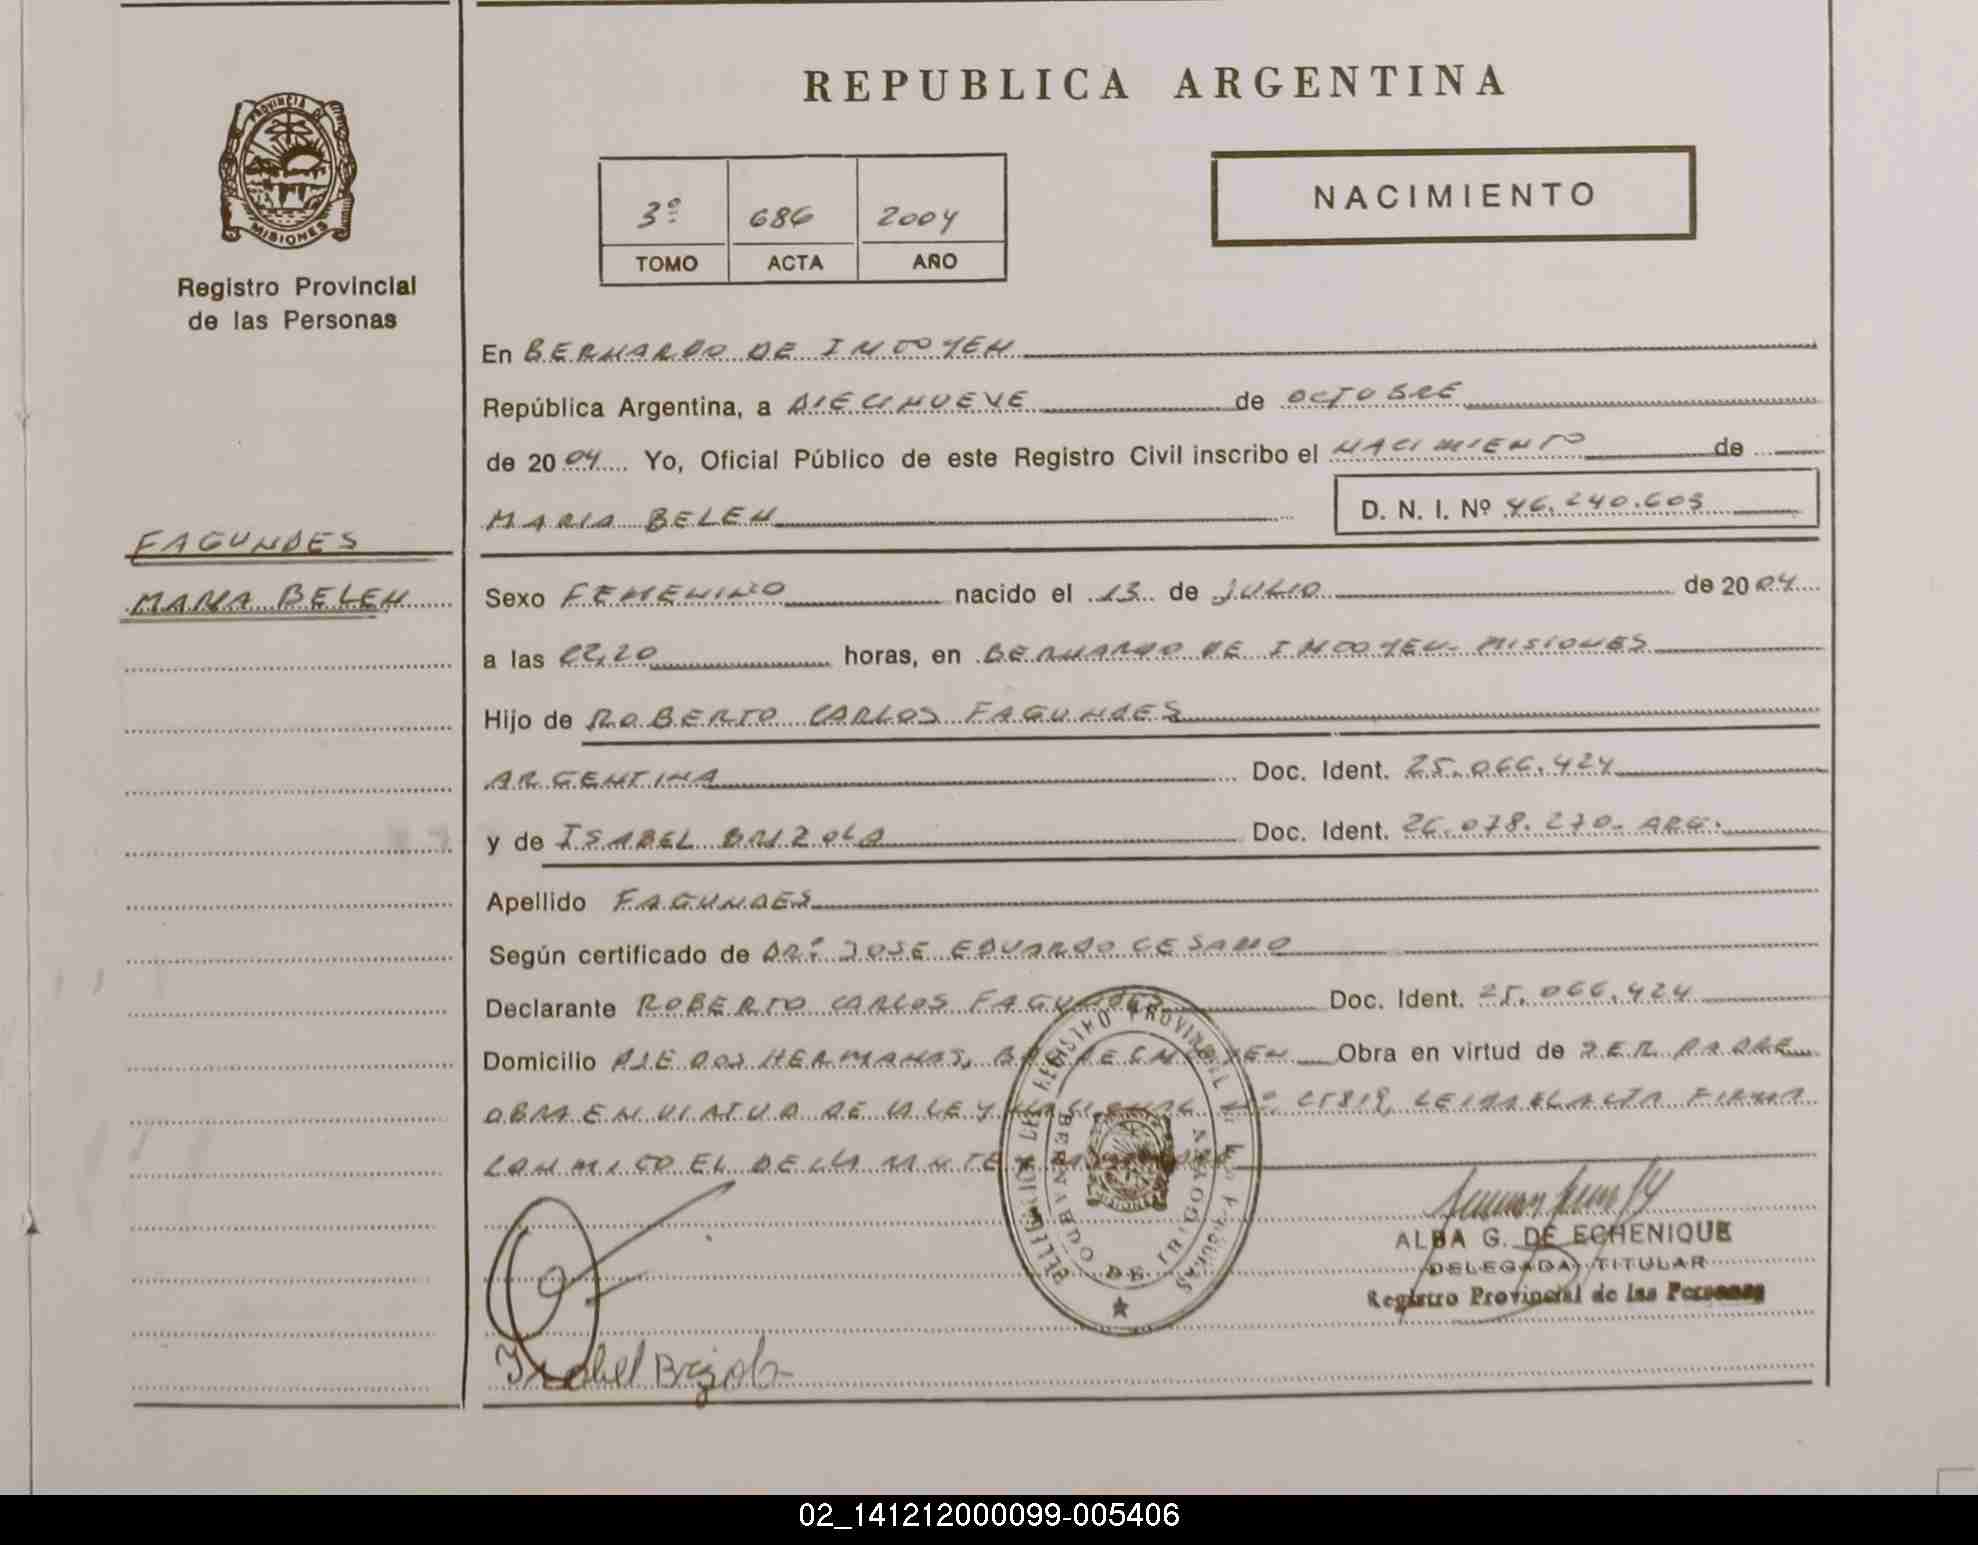 REPUBLICA ARGENTINA
PROVINCIA DE MISIONES
Registro Provincial
de las Personas
NACIMIENTO
3º 686 2004
TOMO ACTA AÑO
En BERNARDO DE IRIGOYEN
República Argentina, a DIECINUEVE de OCTUBRE
de 2004 Yo, Oficial Público de este Registro Civil inscribo el NACIMIENTO de
MARIA BELEN D. N. I. Nº 46.240.603
FAGUNDES
MARIA BELEN
Sexo FEMENINO nacido el 13 de JULIO de 2004
a las 22,20 horas, en BERNARDO DE IRIGOYEN- MISIONES
Hijo de ROBERTO CARLOS FAGUNDES
ARGENTINA Doc. Ident. 25.066.424
y de ISABEL BRIZOLA Doc. Ident. 26.078.270- ARG.
Apellido FAGUNDES
Según certificado de DR. JOSE EDUARDO CESANO
Declarante ROBERTO CARLOS FAGUNDES Doc. Ident. 25.066.424
Domicilio PJE DOS HERMANAS, BDO DE IRIGOYEN Obra en virtud de SER PADRE
OBRA EN VIRTUD DE LA LEY NACIONAL Nº 25819, LEIDA EL ACTA FIRMA
CONMIGO EL DECLARANTE
REGISTRO PROVINCIAL DE LAS PERSONAS
BERNARDO DE IRIGOYEN
ALBA G. DE ECHENIQUE
DELEGADA TITULAR
Registro Provincial de las Personas
Isabel Brizola
02_141212000099-005406